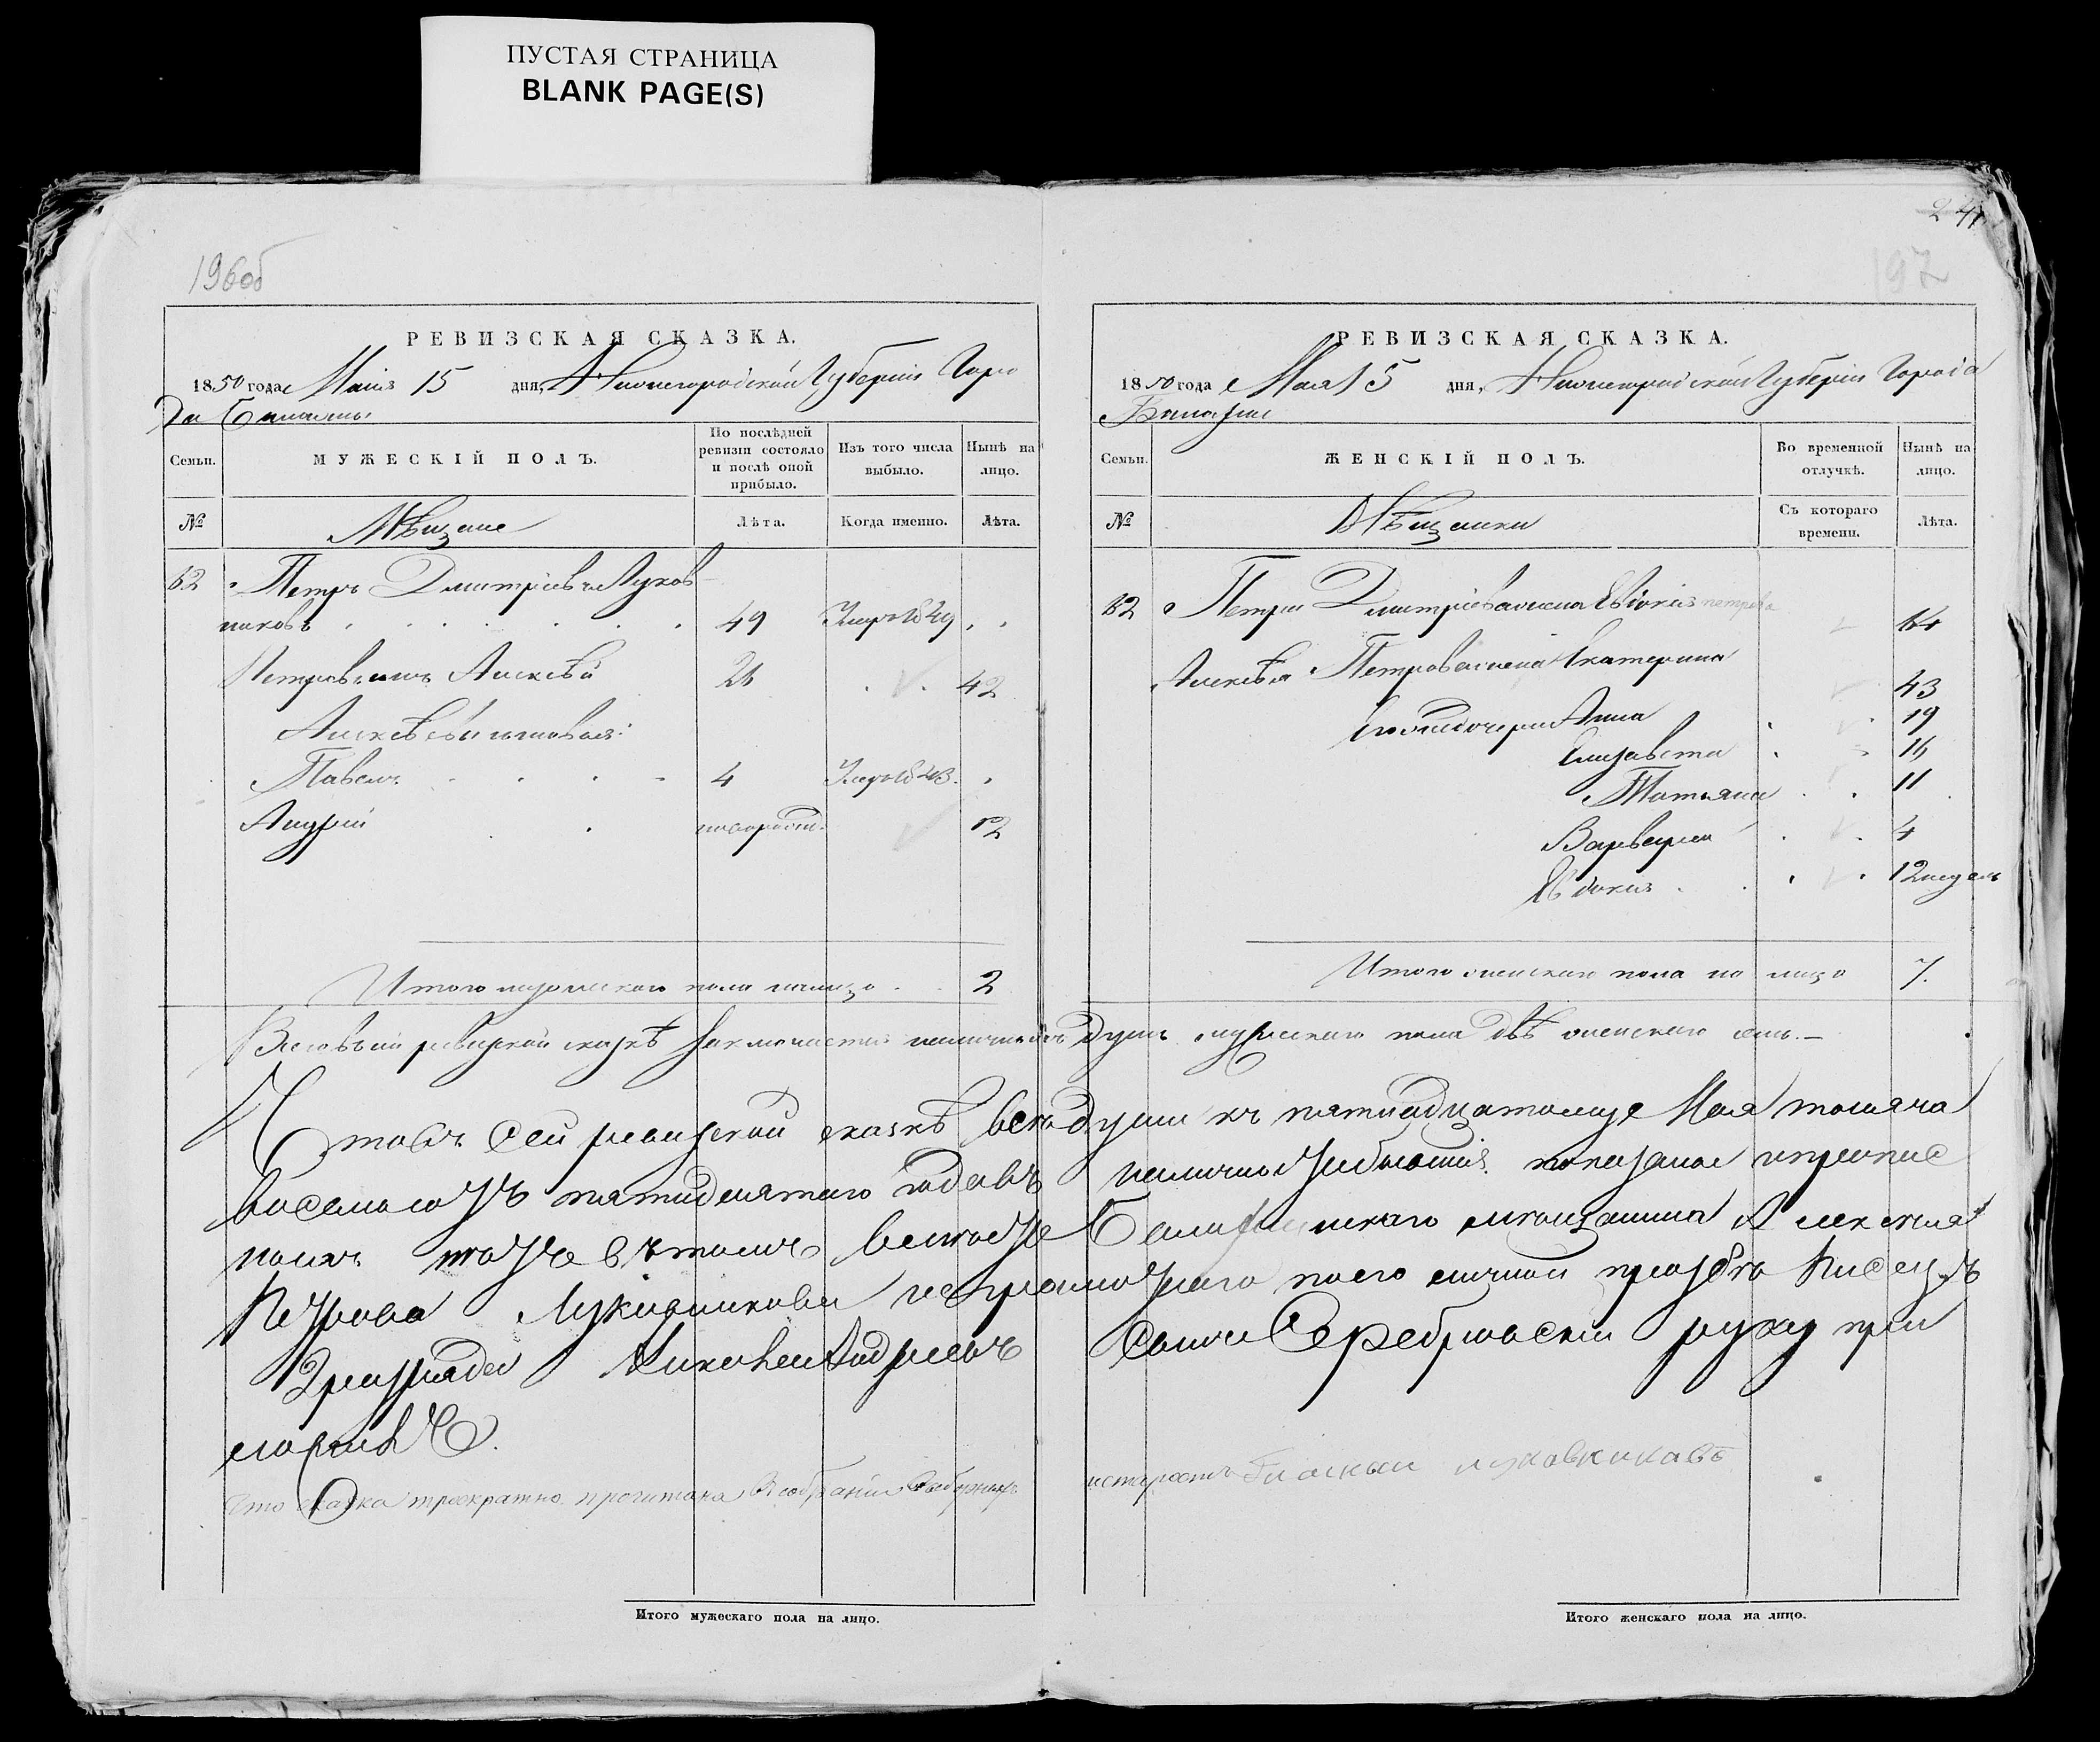 ПУСТАЯ СТРАНИЦА
BLANK PAGE(S)
196об
РЕВИЗСКАЯ СКАЗКА.
1850 года Маія 15 дня, Нижегородской Губерніи Горо
да Балахны
Семьи.
МУЖЕСКІЙ ПОЛЪ.
По послѣдней ревизіи состояло и послѣ оной прибыло.
Изъ того числа выбыло.
Нынѣ на лицо.
№
Мѣщане
Лѣта.
Когда именно.
Лѣта.
62 Петръ Дмитріевъ Луков
никовъ 49 Умеръ 1849
Петровъ сынъ Алексѣй 26 42
Алексѣевы сыновья:
Павелъ 4 Умеръ 1843.
Андрей новорожд. 12
Итого мужескаго пола налицо 2
24
197
РЕВИЗСКАЯ СКАЗКА.
1850 года Мая 15 дня, Нижегородской Губерніи Города
Балахны
Семьи.
ЖЕНСКІЙ ПОЛЪ.
Во временной отлучкѣ.
Нынѣ на лицо.
№
Мѣщанки
Съ котораго времени.
Лѣта.
62 Петра Дмитріева жена Евдокія петрова 64
Алексѣя Петрова жена Екатерина 43
дочери Анна 19
Елизавета 16
Татьяна 11
Варвара 4
Евдокия 12 недель
Итого женскаго пола на лицо 7.
ревизской сказкѣ заключается наличныхъ душъ мужескаго пола двѣ женскаго семь.—
Что въ сей ревизской сказкѣ все души къ пятнадцатому Мая тысяча
восемьсотъ пятидесятаго года въ наличности показаны и прописныхъ
нетъ въ томъ вместо Балахнинскаго мещанина Алексея
Петрова Луковникова неграмотнаго по его личной прозбе Писецъ
2 разряда Андреевъ сынъ Серебровскій руку при
ложилъ.
Что сказка троекратно прочитана въ собраніи выборныхъ
староста луковниковъ
Итого мужескаго пола на лицо.
Итого женскаго пола на лицо.